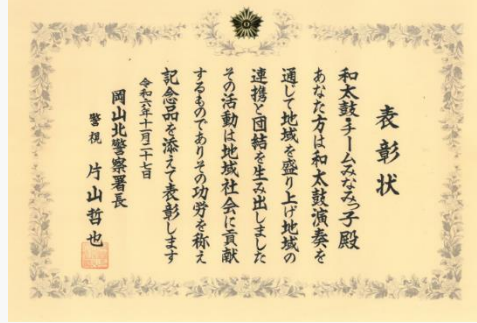 表彰状
和太鼓チームみなみっ子殿
あなた方は和太鼓演奏を
通じて地域を盛り上げ地域の
連携と団結を生み出しました
その活動は地域社会に貢献
するものでありその功労を称え
記念品を添えて表彰します
令和六年十一月二十七日
岡山北警察署長
警視 片山哲也